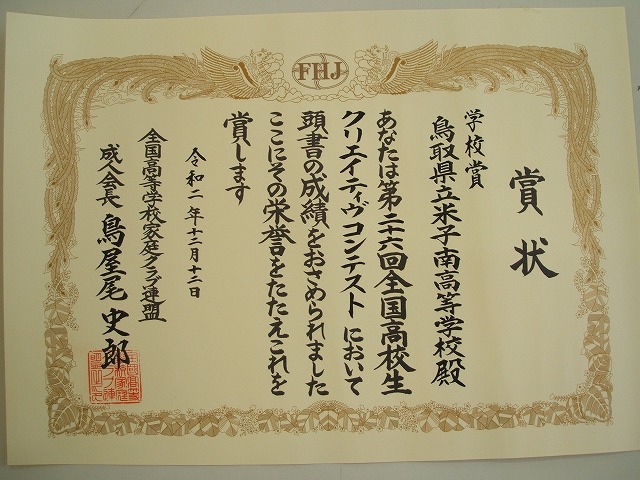 FHJ
賞状
学校賞
鳥取県立米子南高等学校殿
あなたは第二十六回全国高校生
クリエイティヴコンテストにおいて
頭書の成績をおさめられました
ここにその栄誉をたたえこれを
賞します
令和二年十二月十二日
全国高等学校家庭クラブ連盟
成人会長 鳥屋尾史郎